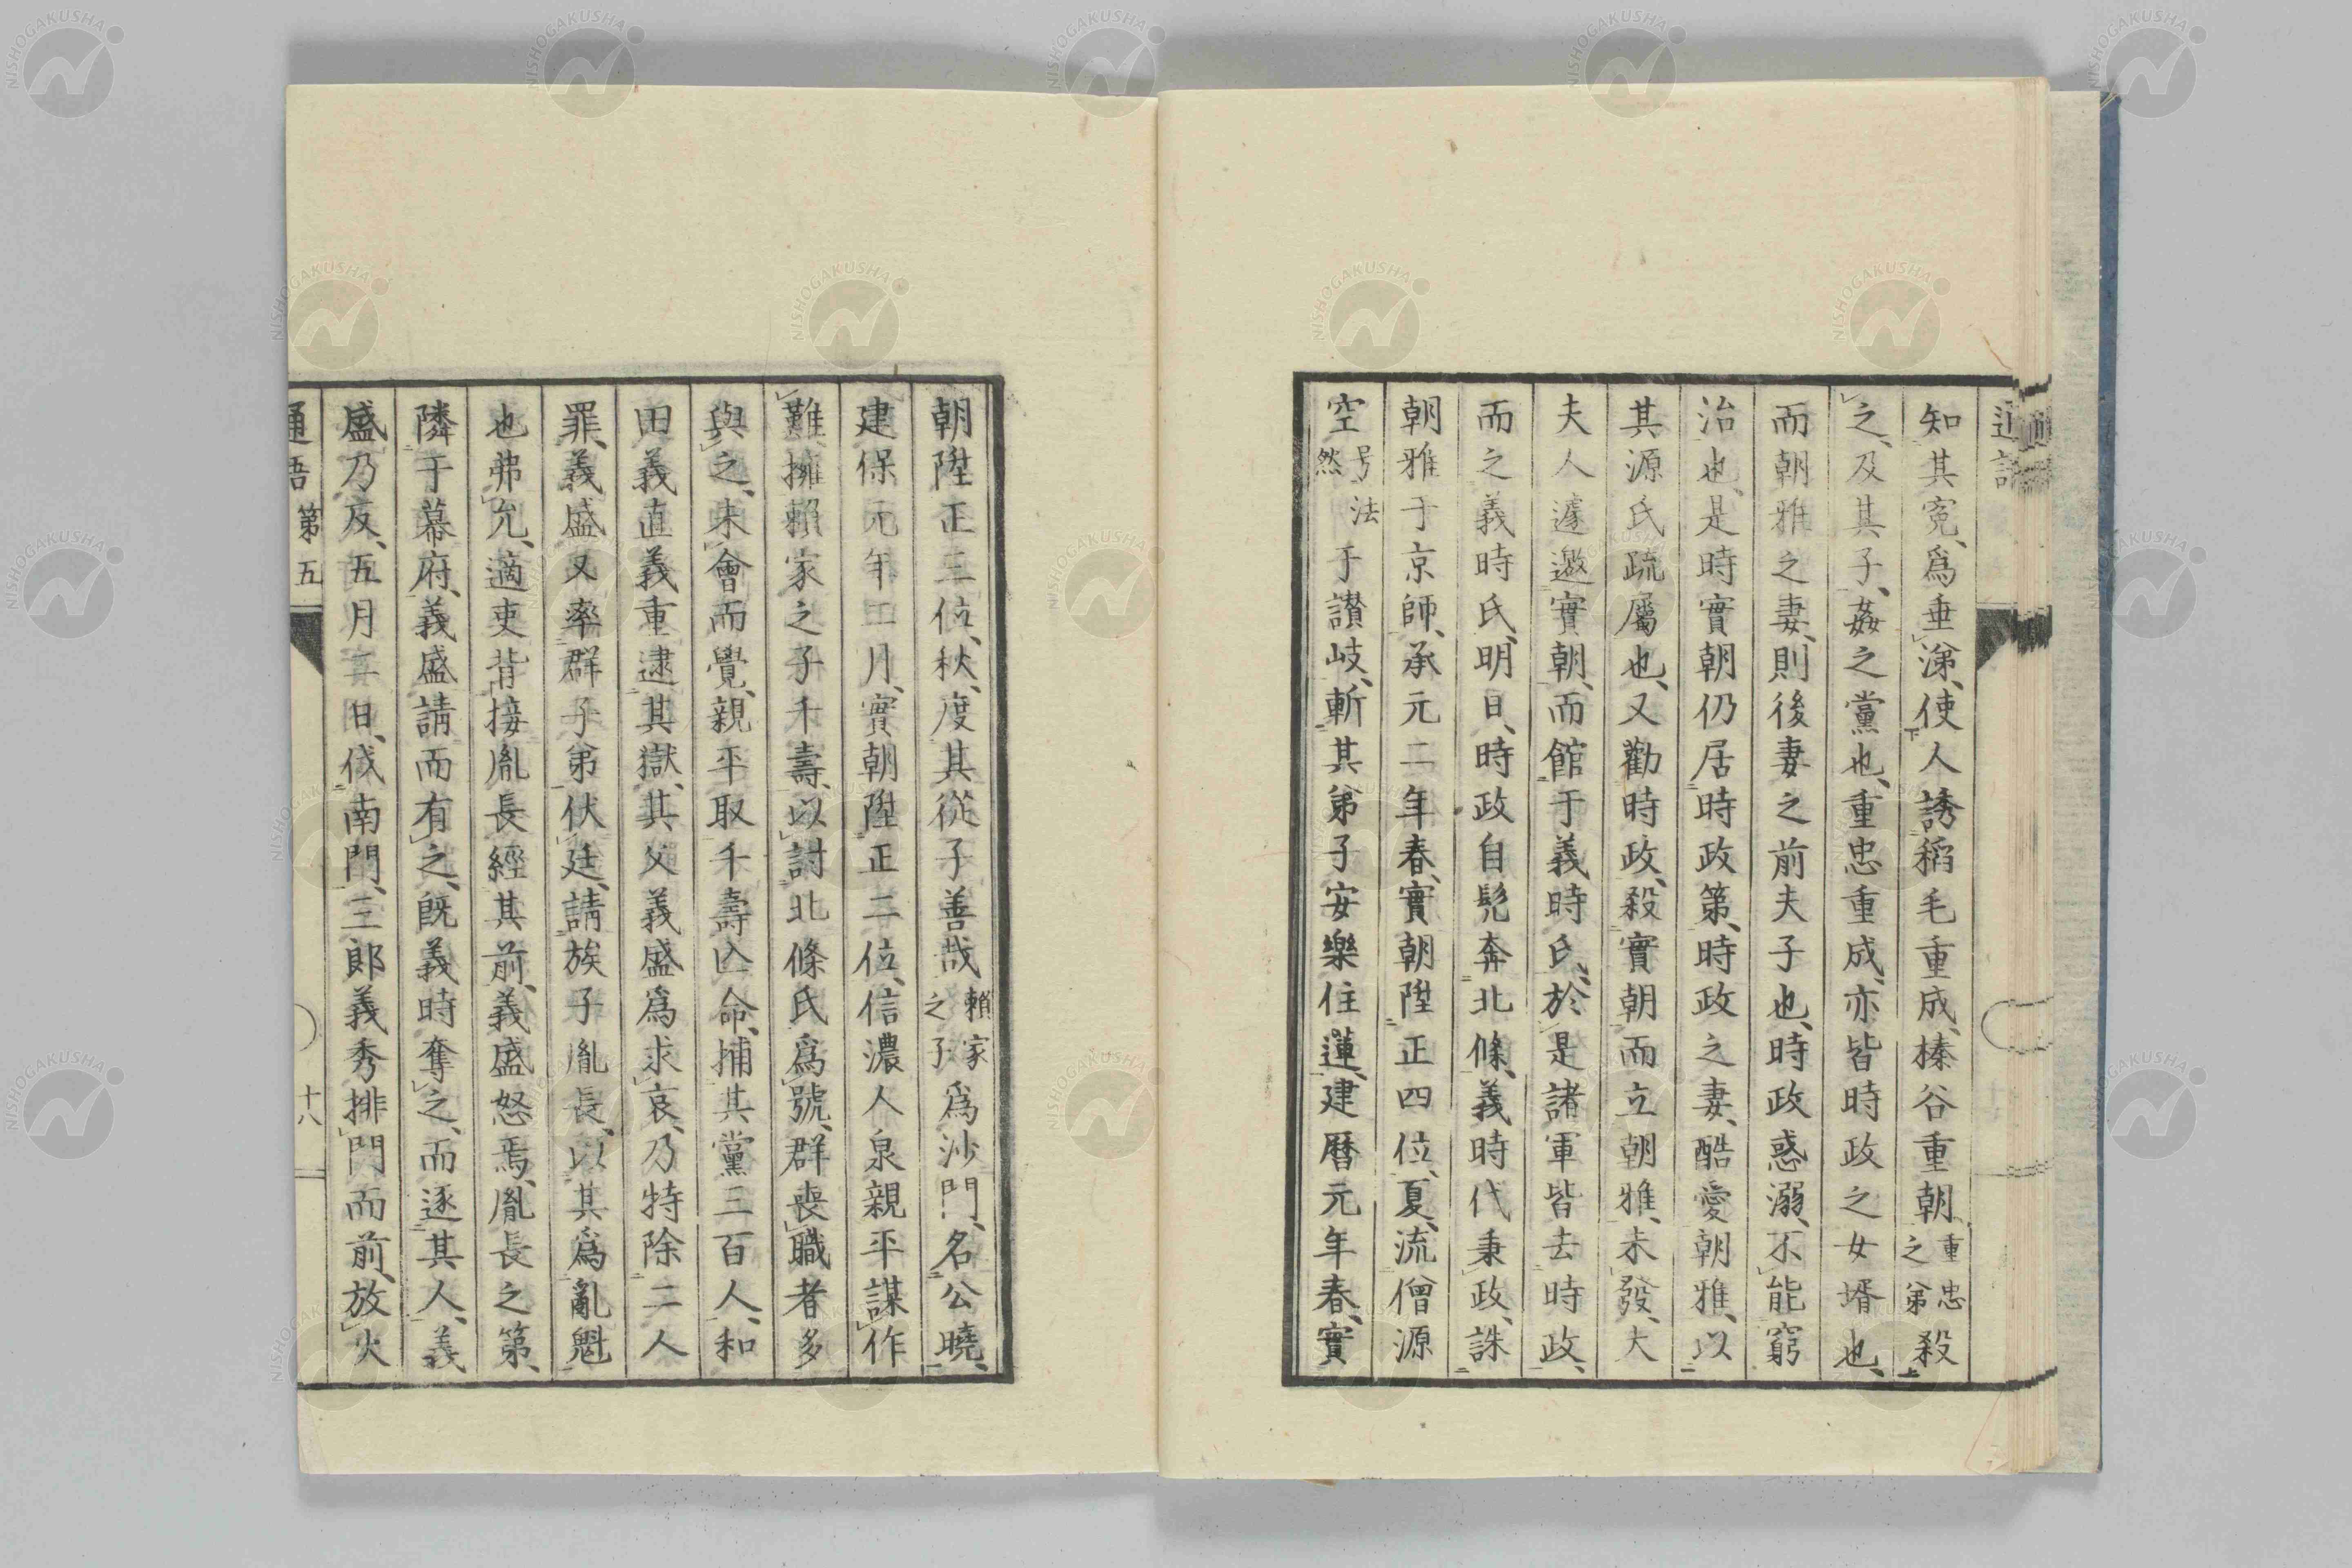 知其寃、爲垂涕、使人誘稻毛重成、榛谷重朝重忠之弟殺
之、及其子、姦之黨也、重忠重成、亦皆時政之女壻也、
而朝雅之妻、則後妻之前夫子也、時政惑溺、不能窮
治也、是時實朝仍居時政第、時政之妻、酷愛朝雅、以
其源氏疏屬也、又勸時政、殺實朝而立朝雅、未發、大
夫人遽邀實朝、而館于義時氏、於是諸軍皆去時政、
而之義時氏、明日、時政自髡奔北條、義時代秉政、誅
朝雅于京師、承元二年春、實朝陞正四位、夏、流僧源
空号法然于讃岐、斬其弟子安樂住蓮、建暦元年春、實
朝陞正三位、秋、度其從子善哉頼家之子爲沙門、名公曉、
建保元年二月、實朝陞正二位、信濃人泉親平謀作
難、擁頼家之子千壽、以討北條氏爲號、群喪職者多
與之、未會而覺、親平取千壽亾命、捕其黨三百人、和
田義直義重逮其獄、其父義盛爲求哀、乃特除二人
罪、義盛又率群子弟、伏廷、請族子胤長、以其爲亂魁
也弗允、適吏背接胤長經其前、義盛怒焉、胤長之第、
隣于幕府、義盛請而有之、既義時奪之、而逐其人、義
盛乃反、五月二日、伐南門、三郎義秀排門而前、放火
通語 第五
十八